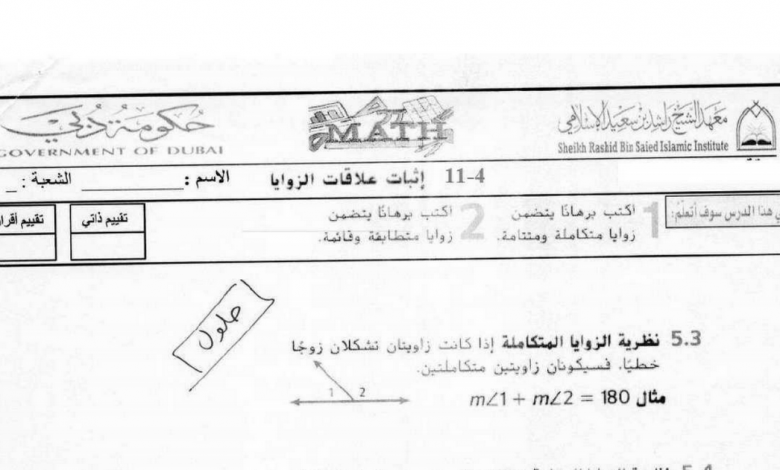 حكومة دبي
GOVERNMENT OF DUBAI
MATH
معهد الشيخ راشد بن سعيد الإسلامي
Sheikh Rashid Bin Saied Islamic Institute
11-4 إثبات علاقات الزوايا
الاسم :
الشعبة :
هذا الدرس سوف أتعلّم:
1 اكتب برهانًا يتضمن
زوايا متكاملة ومتتامة.
2 اكتب برهانًا يتضمن
زوايا متطابقة وقائمة.
تقييم ذاتي
تقييم أقرا
حلول
5.3 نظرية الزوايا المتكاملة إذا كانت زاويتان تشكلان زوجًا
خطيًا، فسيكونان زاويتين متكاملتين.
1 2
مثال m∠1 + m∠2 = 180